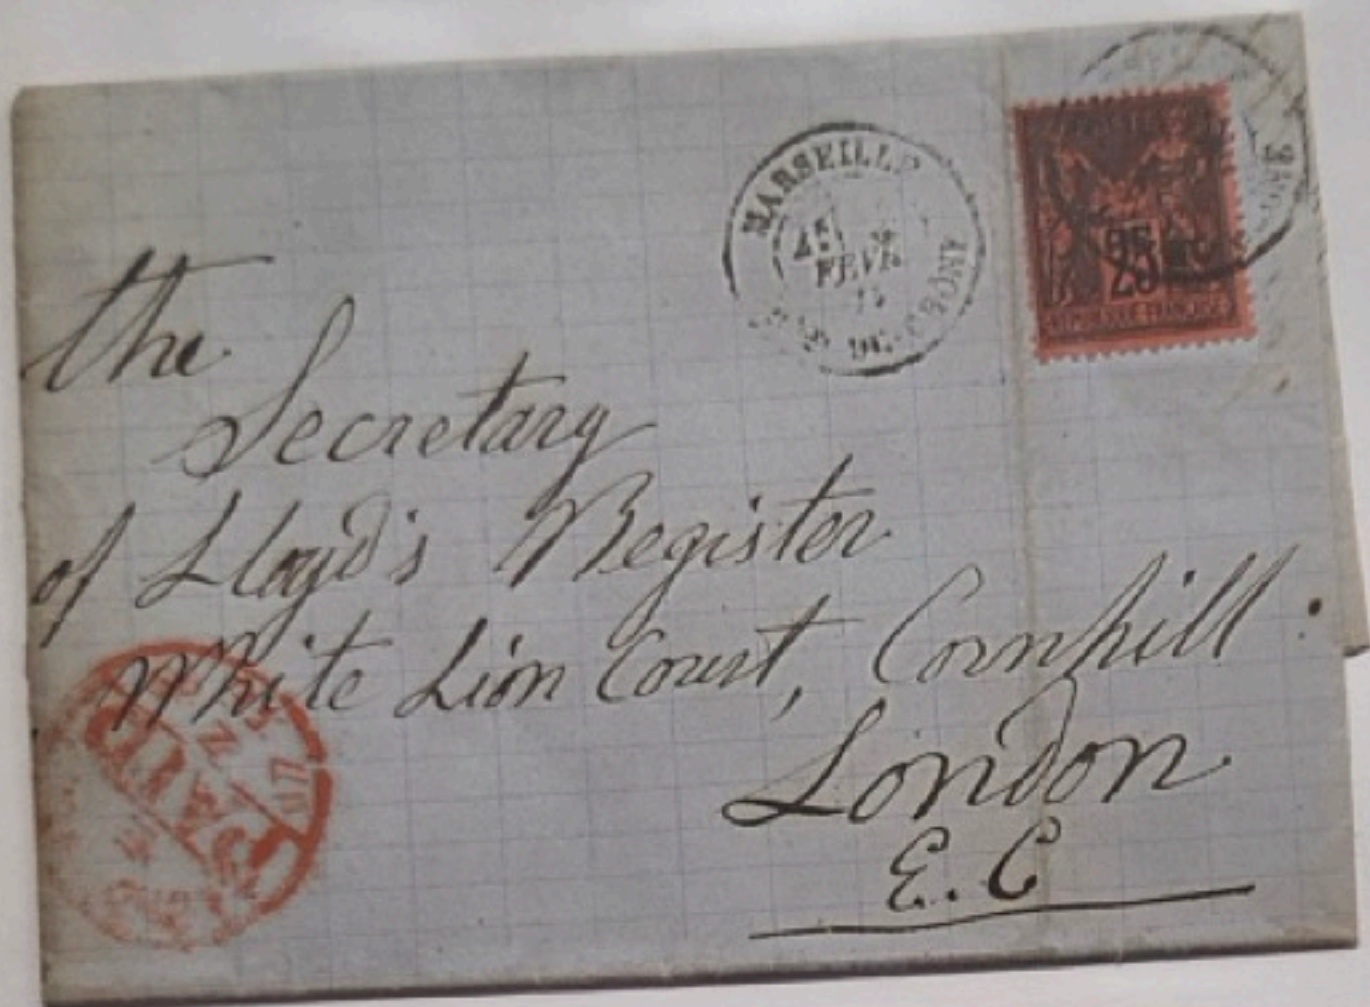 MARSEILLE
FEVR
25
REPUBLIQUE FRANCAISE
the
Secretary
of Lloyd's Register
White Lion Court, Cornhill.
London
E.C
PAID